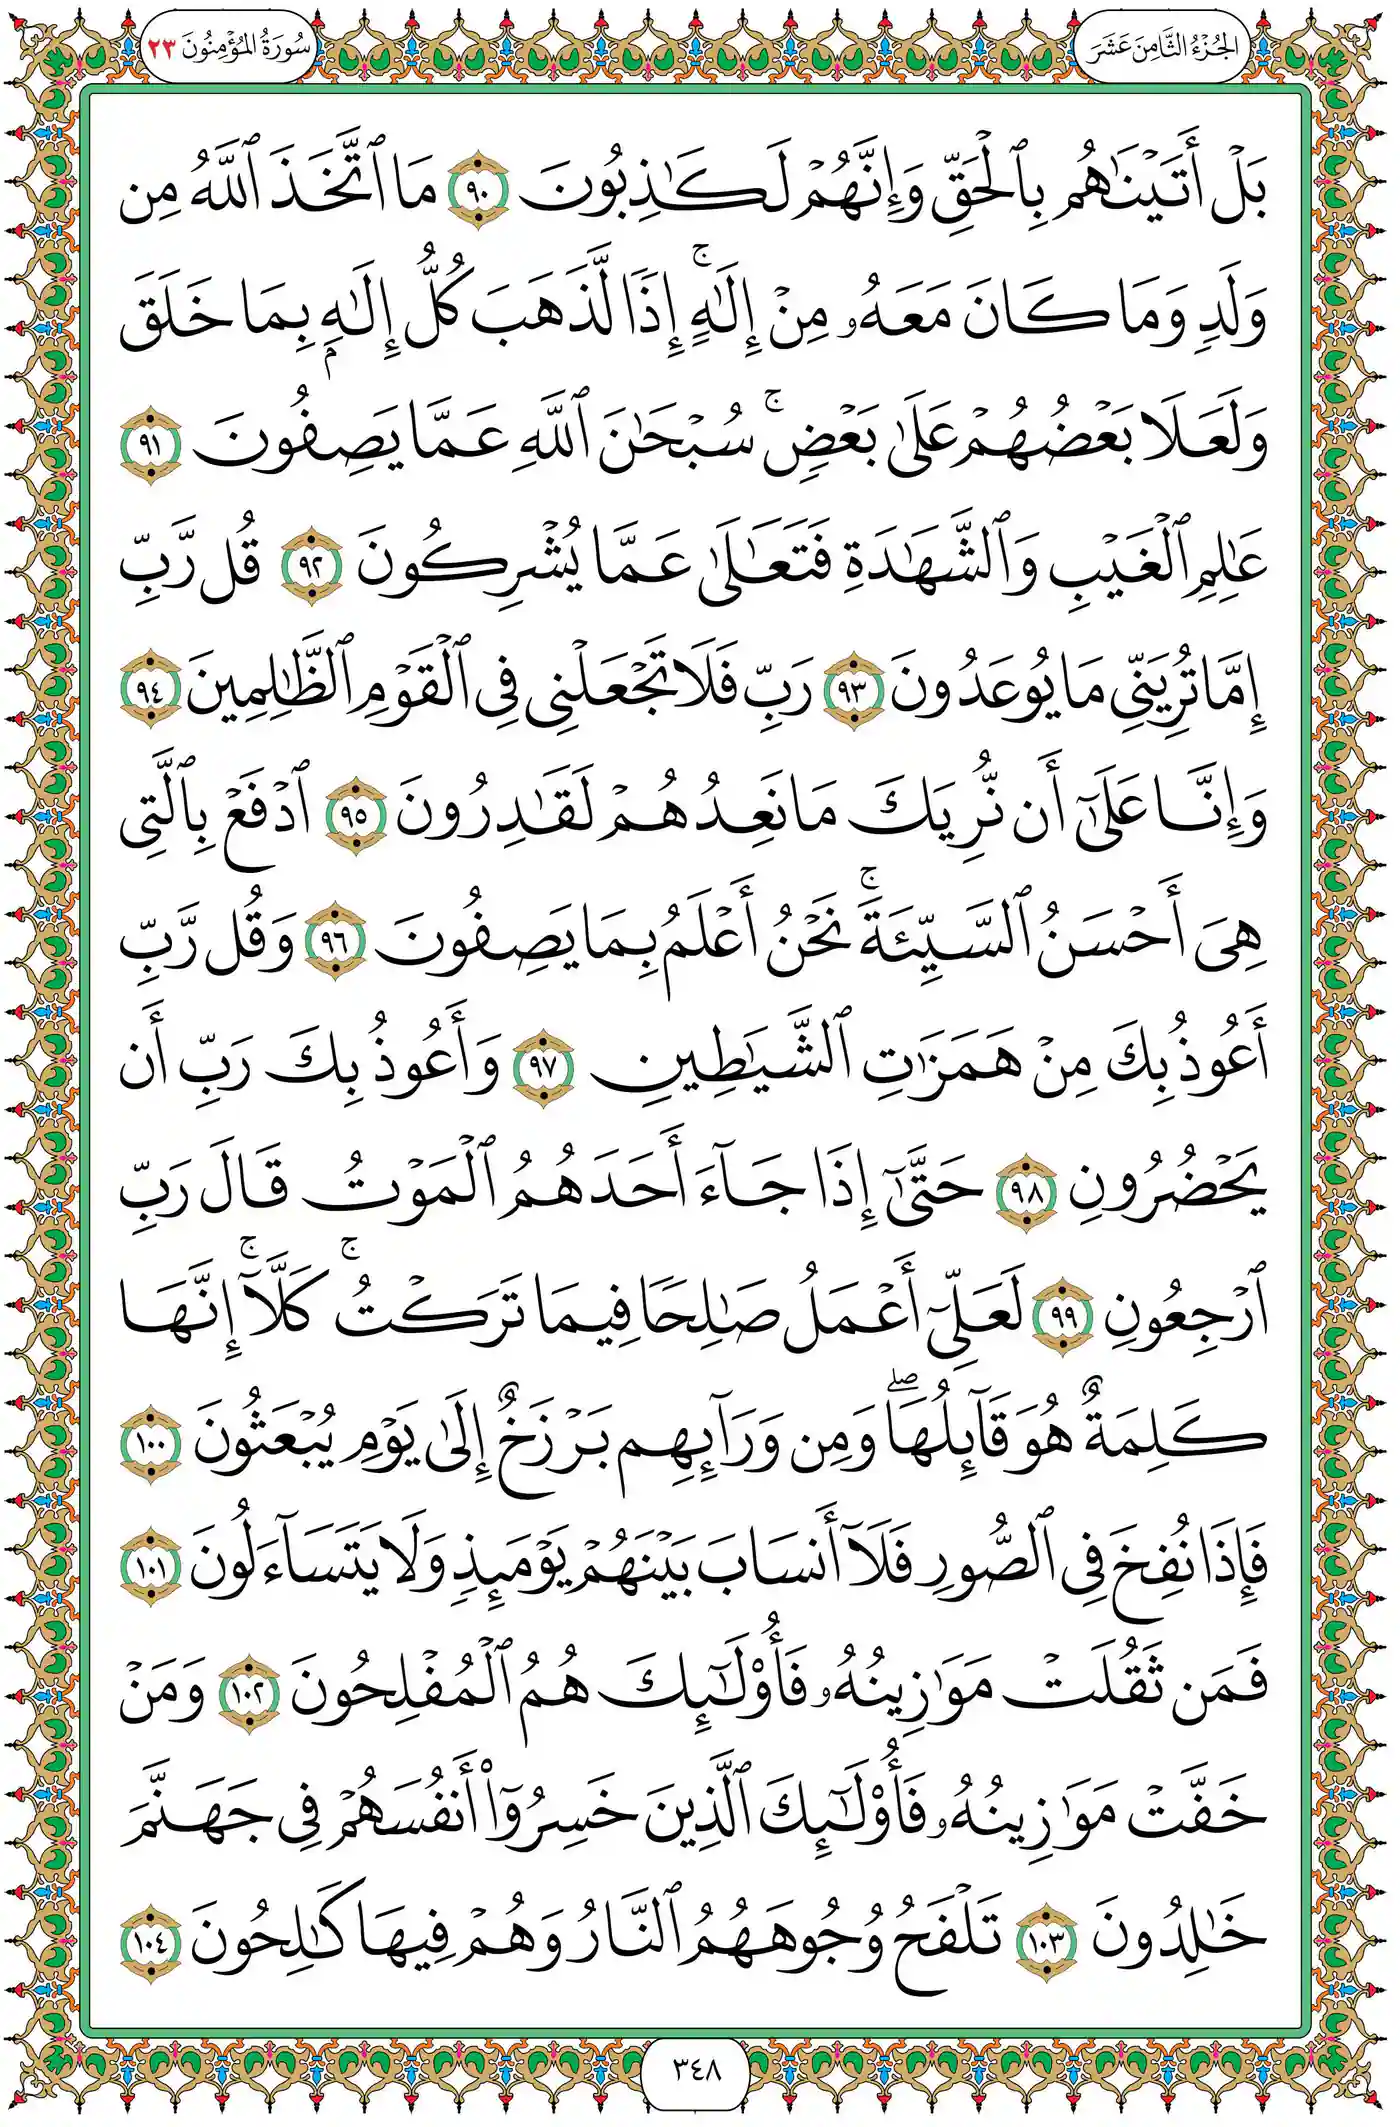 الجُزْءُ الثَّامِنَ عَشَرَ
سُورَةُ المُؤْمِنُونَ ٢٣
بَلْ أَتَيْنَٰهُم بِٱلْحَقِّ وَإِنَّهُمْ لَكَٰذِبُونَ ٩٠ مَا ٱتَّخَذَ ٱللَّهُ مِن
وَلَدٍ وَمَا كَانَ مَعَهُۥ مِنْ إِلَٰهٍ ۚ إِذًا لَّذَهَبَ كُلُّ إِلَٰهٍۭ بِمَا خَلَقَ
وَلَعَلَا بَعْضُهُمْ عَلَىٰ بَعْضٍ ۚ سُبْحَٰنَ ٱللَّهِ عَمَّا يَصِفُونَ ٩١
عَٰلِمِ ٱلْغَيْبِ وَٱلشَّهَٰدَةِ فَتَعَٰلَىٰ عَمَّا يُشْرِكُونَ ٩٢ قُل رَّبِّ
إِمَّا تُرِيَنِّي مَا يُوعَدُونَ ٩٣ رَبِّ فَلَا تَجْعَلْنِي فِي ٱلْقَوْمِ ٱلظَّٰلِمِينَ ٩٤
وَإِنَّا عَلَىٰٓ أَن نُّرِيَكَ مَا نَعِدُهُمْ لَقَٰدِرُونَ ٩٥ ٱدْفَعْ بِٱلَّتِي
هِيَ أَحْسَنُ ٱلسَّيِّئَةَ ۚ نَحْنُ أَعْلَمُ بِمَا يَصِفُونَ ٩٦ وَقُل رَّبِّ
أَعُوذُ بِكَ مِنْ هَمَزَٰتِ ٱلشَّيَٰطِينِ ٩٧ وَأَعُوذُ بِكَ رَبِّ أَن
يَحْضُرُونِ ٩٨ حَتَّىٰٓ إِذَا جَآءَ أَحَدَهُمُ ٱلْمَوْتُ قَالَ رَبِّ
ٱرْجِعُونِ ٩٩ لَعَلِّيٓ أَعْمَلُ صَٰلِحًا فِيمَا تَرَكْتُ ۚ كَلَّآ ۚ إِنَّهَا
كَلِمَةٌ هُوَ قَآئِلُهَا ۖ وَمِن وَرَآئِهِم بَرْزَخٌ إِلَىٰ يَوْمِ يُبْعَثُونَ ١٠٠
فَإِذَا نُفِخَ فِي ٱلصُّورِ فَلَآ أَنسَابَ بَيْنَهُمْ يَوْمَئِذٍ وَلَا يَتَسَآءَلُونَ ١٠١
فَمَن ثَقُلَتْ مَوَٰزِينُهُۥ فَأُو۟لَٰٓئِكَ هُمُ ٱلْمُفْلِحُونَ ١٠٢ وَمَنْ
خَفَّتْ مَوَٰزِينُهُۥ فَأُو۟لَٰٓئِكَ ٱلَّذِينَ خَسِرُوٓا۟ أَنفُسَهُمْ فِي جَهَنَّمَ
خَٰلِدُونَ ١٠٣ تَلْفَحُ وُجُوهَهُمُ ٱلنَّارُ وَهُمْ فِيهَا كَٰلِحُونَ ١٠٤
٣٤٨